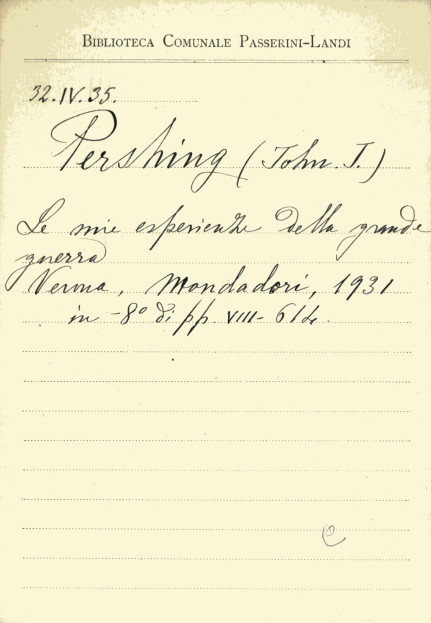 BIBLIOTECA COMUNALE PASSERINI-LANDI
32.IV.35.
Pershing (John. J.)
Le mie esperienze della grande
guerra
Verona, Mondadori, 1931
in -8° di pp. VIII- 614.
e